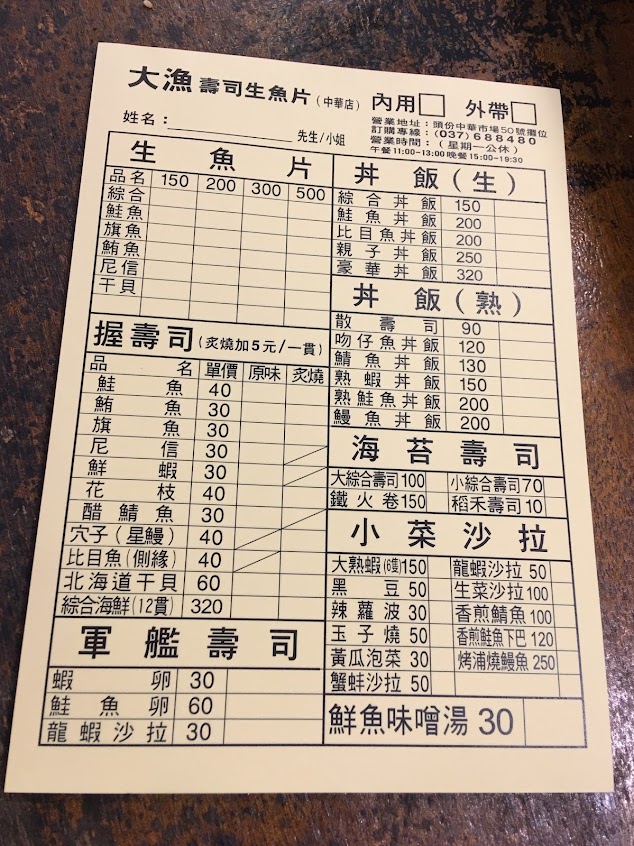 大漁 壽司生魚片(中華店) 內用 外帶
營業地址:頭份中華市場50號攤位
訂購專線:(037)688480
營業時間:(星期一公休)
午餐11:00-13:00晚餐15:00-19:30
姓名: 先生/小姐
生魚片
品名 150 200 300 500
綜合
鮭魚
旗魚
鮪魚
尼信
干貝
握壽司(炙燒加5元/一貫)
品名 單價 原味 炙燒
鮭魚 40
鮪魚 30
旗魚 30
尼信 30
鮮蝦 30
花枝 40
醋鯖魚 30
穴子(星鰻) 40
比目魚(側緣) 40
北海道干貝 60
綜合海鮮(12貫) 320
軍艦壽司
蝦卵 30
鮭魚卵 60
龍蝦沙拉 30
丼飯(生)
綜合丼飯 150
鮭魚丼飯 200
比目魚丼飯 200
親子丼飯 250
豪華丼飯 320
丼飯(熟)
散壽司 90
吻仔魚丼飯 120
鯖魚丼飯 130
熟蝦丼飯 150
熟鮭魚丼飯 200
鰻魚丼飯 200
海苔壽司
大綜合壽司100 小綜合壽司70
鐵火卷150 稻禾壽司10
小菜沙拉
大熟蝦(6隻)150 龍蝦沙拉 50
黑豆 50 生菜沙拉 100
辣蘿波 30 香煎鯖魚 100
玉子燒 50 香煎鮭魚下巴 120
黃瓜泡菜 30 烤浦燒鰻魚 250
蟹蚌沙拉 50
鮮魚味噌湯 30